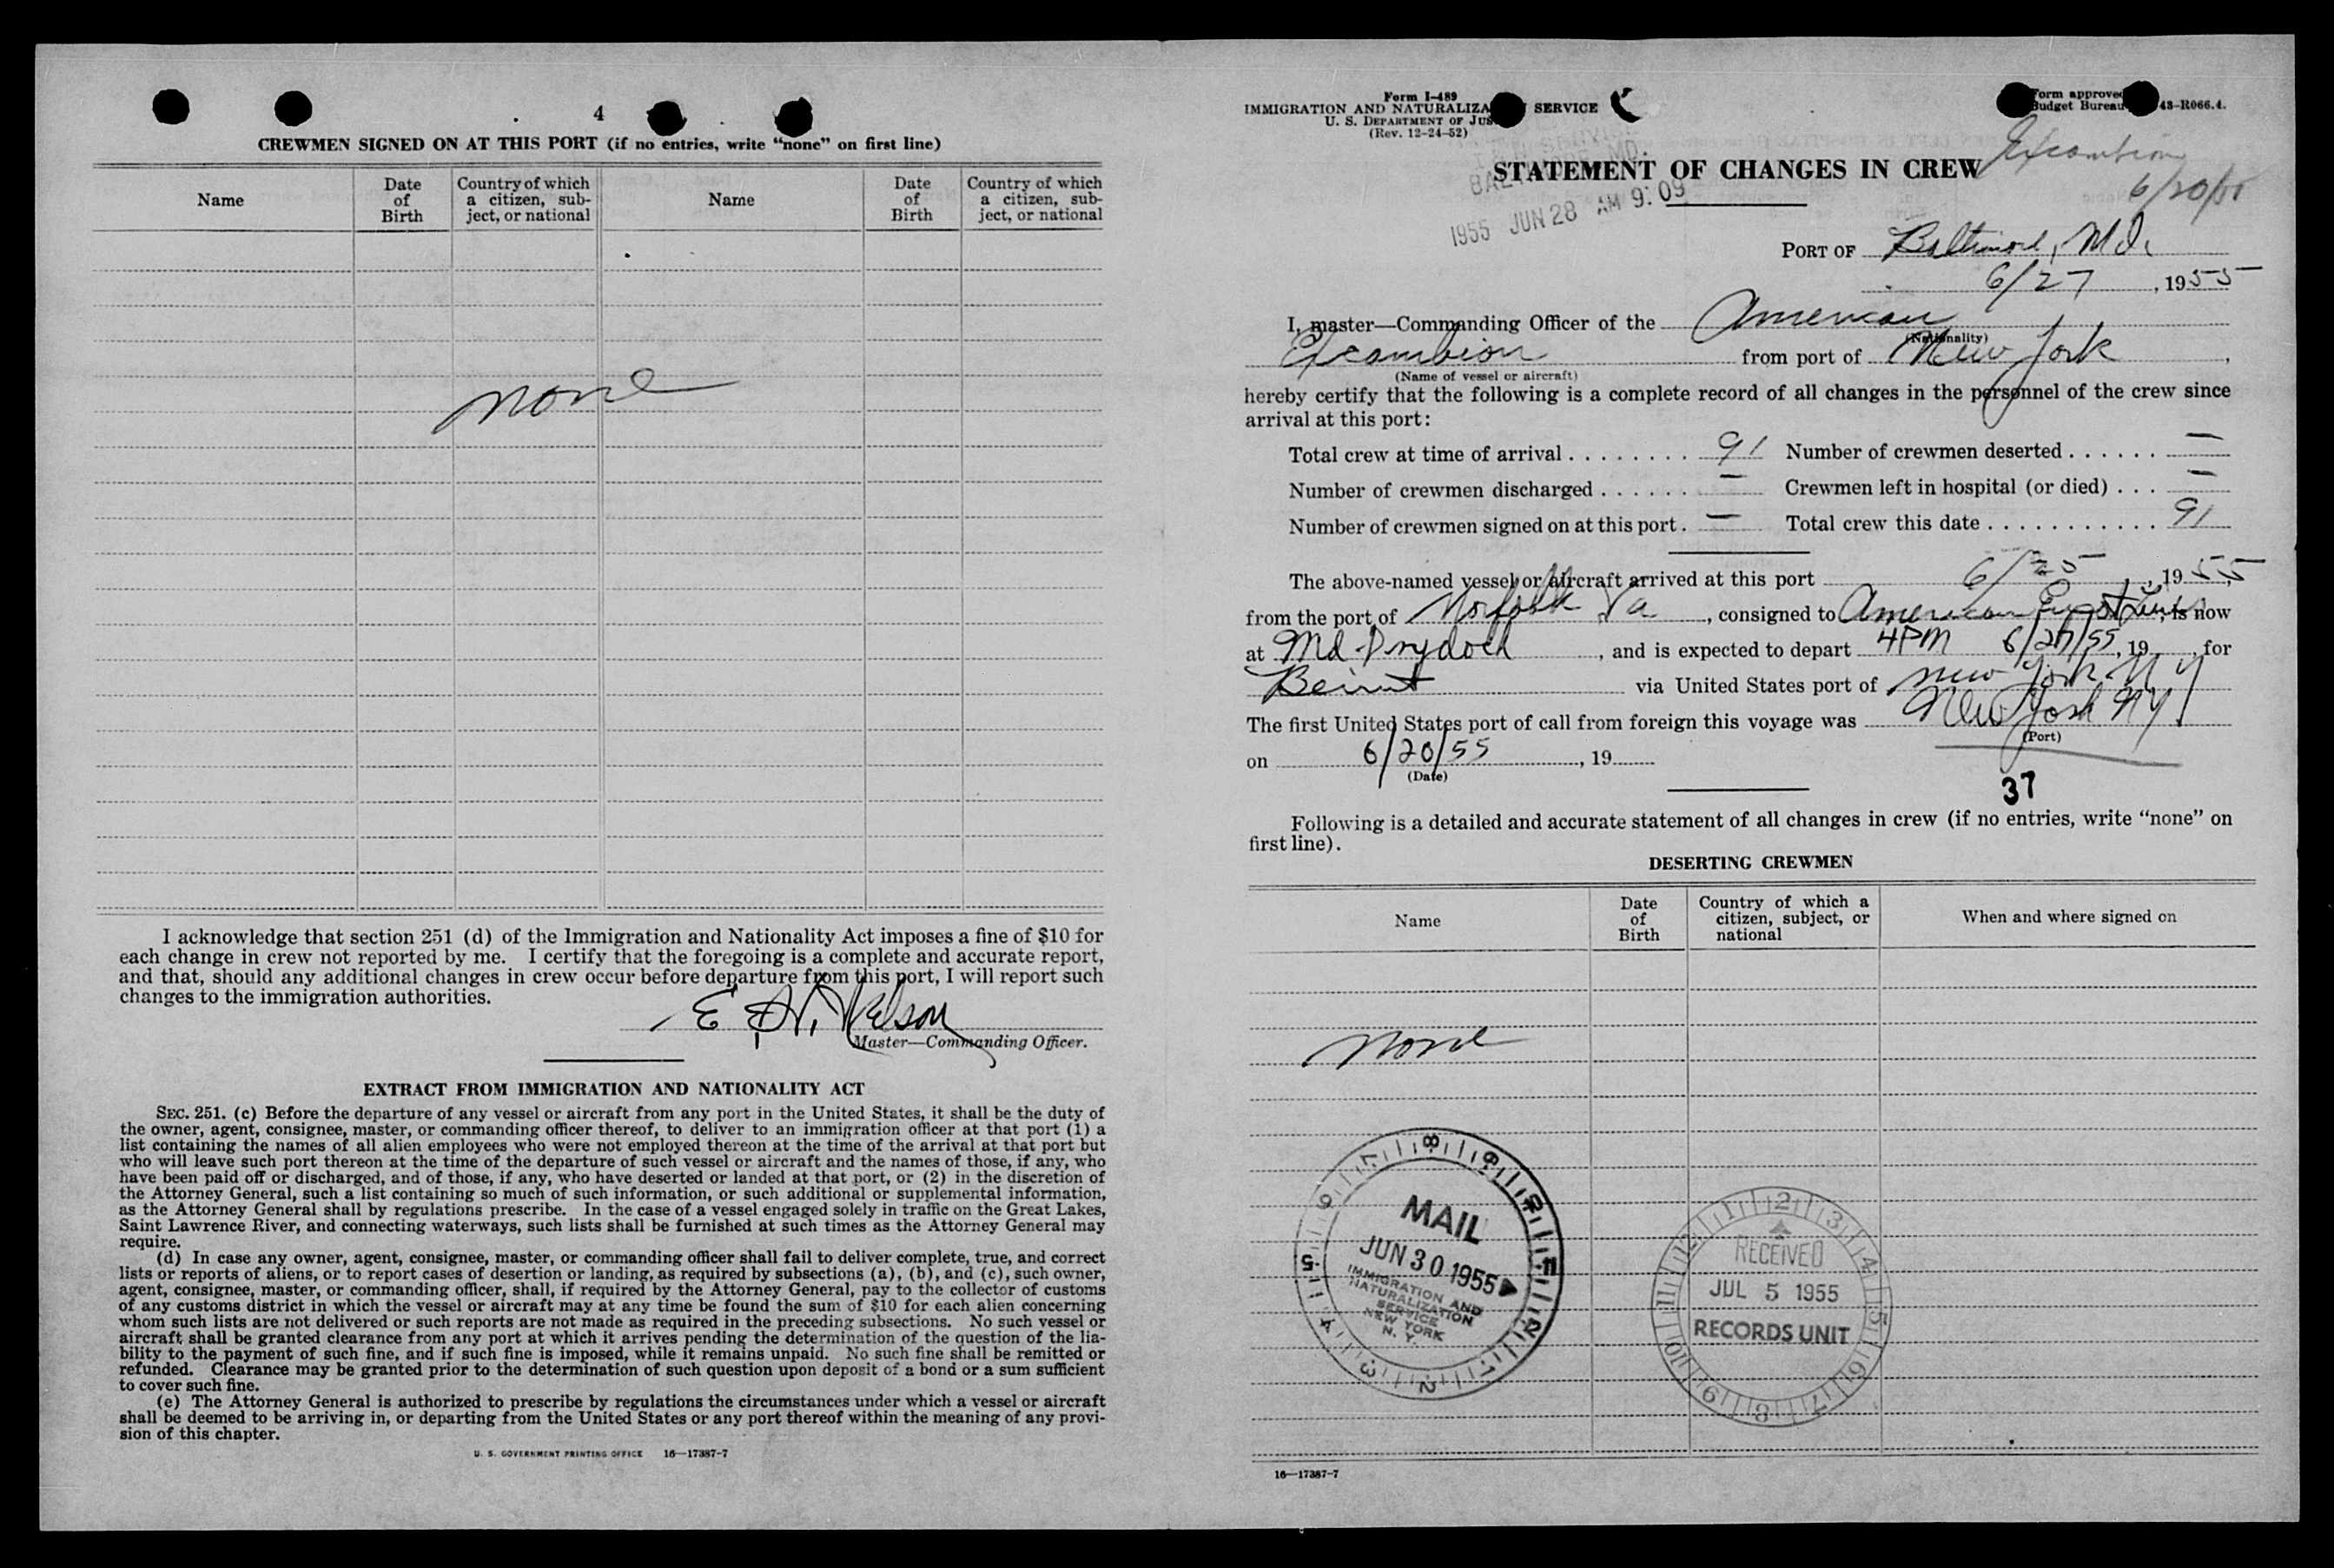 4
CREWMEN SIGNED ON AT THIS PORT (if no entries, write “none” on first line)
Name
Date of Birth
Country of which a citizen, sub-
ject, or national
Name
Date of Birth
Country of which a citizen, sub-
ject, or national
none
I acknowledge that section 251 (d) of the Immigration and Nationality Act imposes a fine of $10 for
each change in crew not reported by me. I certify that the foregoing is a complete and accurate report,
and that, should any additional changes in crew occur before departure from this port, I will report such
changes to the immigration authorities.
Nelson
Master—Commanding Officer.
EXTRACT FROM IMMIGRATION AND NATIONALITY ACT
SEC. 251. (c) Before the departure of any vessel or aircraft from any port in the United States, it shall be the duty of
the owner, agent, consignee, master, or commanding officer thereof, to deliver to an immigration officer at that port (1) a
list containing the names of all alien employees who were not employed thereon at the time of the arrival at that port but
who will leave such port thereon at the time of the departure of such vessel or aircraft and the names of those, if any, who
have been paid off or discharged, and of those, if any, who have deserted or landed at that port, or (2) in the discretion of
the Attorney General, such a list containing so much of such information, or such additional or supplemental information,
as the Attorney General shall by regulations prescribe. In the case of a vessel engaged solely in traffic on the Great Lakes,
Saint Lawrence River, and connecting waterways, such lists shall be furnished at such times as the Attorney General may
require.
(d) In case any owner, agent, consignee, master, or commanding officer shall fail to deliver complete, true, and correct
lists or reports of aliens, or to report cases of desertion or landing, as required by subsections (a), (b), and (c), such owner,
agent, consignee, master, or commanding officer, shall, if required by the Attorney General, pay to the collector of customs
of any customs district in which the vessel or aircraft may at any time be found the sum of $10 for each alien concerning
whom such lists are not delivered or such reports are not made as required in the preceding subsections. No such vessel or
aircraft shall be granted clearance from any port at which it arrives pending the determination of the question of the lia-
bility to the payment of such fine, and if such fine is imposed, while it remains unpaid. No such fine shall be remitted or
refunded. Clearance may be granted prior to the determination of such question upon deposit of a bond or a sum sufficient
to cover such fine.
(e) The Attorney General is authorized to prescribe by regulations the circumstances under which a vessel or aircraft
shall be deemed to be arriving in, or departing from the United States or any port thereof within the meaning of any provi-
sion of this chapter.
U. S. GOVERNMENT PRINTING OFFICE 16—17387-7
Form I-489
IMMIGRATION AND NATURALIZA SERVICE
U. S. DEPARTMENT OF JUS
(Rev. 12-24-52)
Form approve
Budget Bureau 43-R066.4.
Excambion
6/20/55
STATEMENT OF CHANGES IN CREW
1955 JUN 28 AM 9:09
PORT OF Baltimore, Md.
6/27, 1955
I, master—Commanding Officer of the American
(Nationality)
Excambion from port of New York,
(Name of vessel or aircraft)
hereby certify that the following is a complete record of all changes in the personnel of the crew since
arrival at this port:
Total crew at time of arrival . . . . . . . . 91 Number of crewmen deserted . . . . . . —
Number of crewmen discharged . . . . . . — Crewmen left in hospital (or died) . . . —
Number of crewmen signed on at this port . — Total crew this date . . . . . . . . . . . 91
The above-named vessel or aircraft arrived at this port 6/25, 1955,
from the port of Norfolk Va, consigned to American Export Lines, is now
at Md Drydock, and is expected to depart 4PM 6/27/55, 19 , for
Beirut via United States port of New York N Y
The first United States port of call from foreign this voyage was New York NY
(Port)
on 6/20/55, 19
(Date)
37
Following is a detailed and accurate statement of all changes in crew (if no entries, write “none” on
first line).
DESERTING CREWMEN
Name
Date of Birth
Country of which a citizen, subject, or national
When and where signed on
none
MAIL
JUN 30 1955
IMMIGRATION AND
NATURALIZATION
SERVICE
NEW YORK
N. Y.
RECEIVED
JUL 5 1955
RECORDS UNIT
16—17387-7